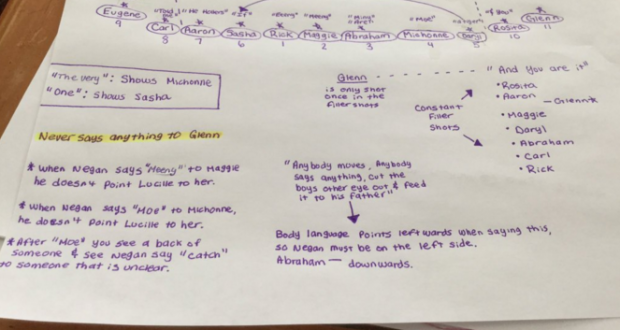 "of you"
"It"
"Meeny"
"Moe"
Eugene
Carl
Aaron
Sasha
Rick
Maggie
Abraham
Michonne
Daryl
Rosita
Glenn
9
8
7
6
1
2
3
4
5
10
11
"The very": Shows Michonne
"One": Shows Sasha
Glenn - - - - - - - -
is only shot
once in the
filler shots
"And you are it"
• Rosita
• Aaron
— Glenn*
• Maggie
• Daryl
• Abraham
• Carl
• Rick
Constant
Filler
Shots
Never says anything to Glenn
* When Negan says "Meeny" to Maggie
he doesn't Point Lucille to her.
* When Negan says "Moe" to Michonne,
he doesn't Point Lucille to her.
* After "Moe" you see a back of
someone & see Negan say "Catch"
to someone that is unclear.
"Anybody moves, Anybody
says anything, cut the
boys other eye out & feed
it to his father"
Body language points leftwards when saying this,
so Negan must be on the left side.
Abraham — downwards.